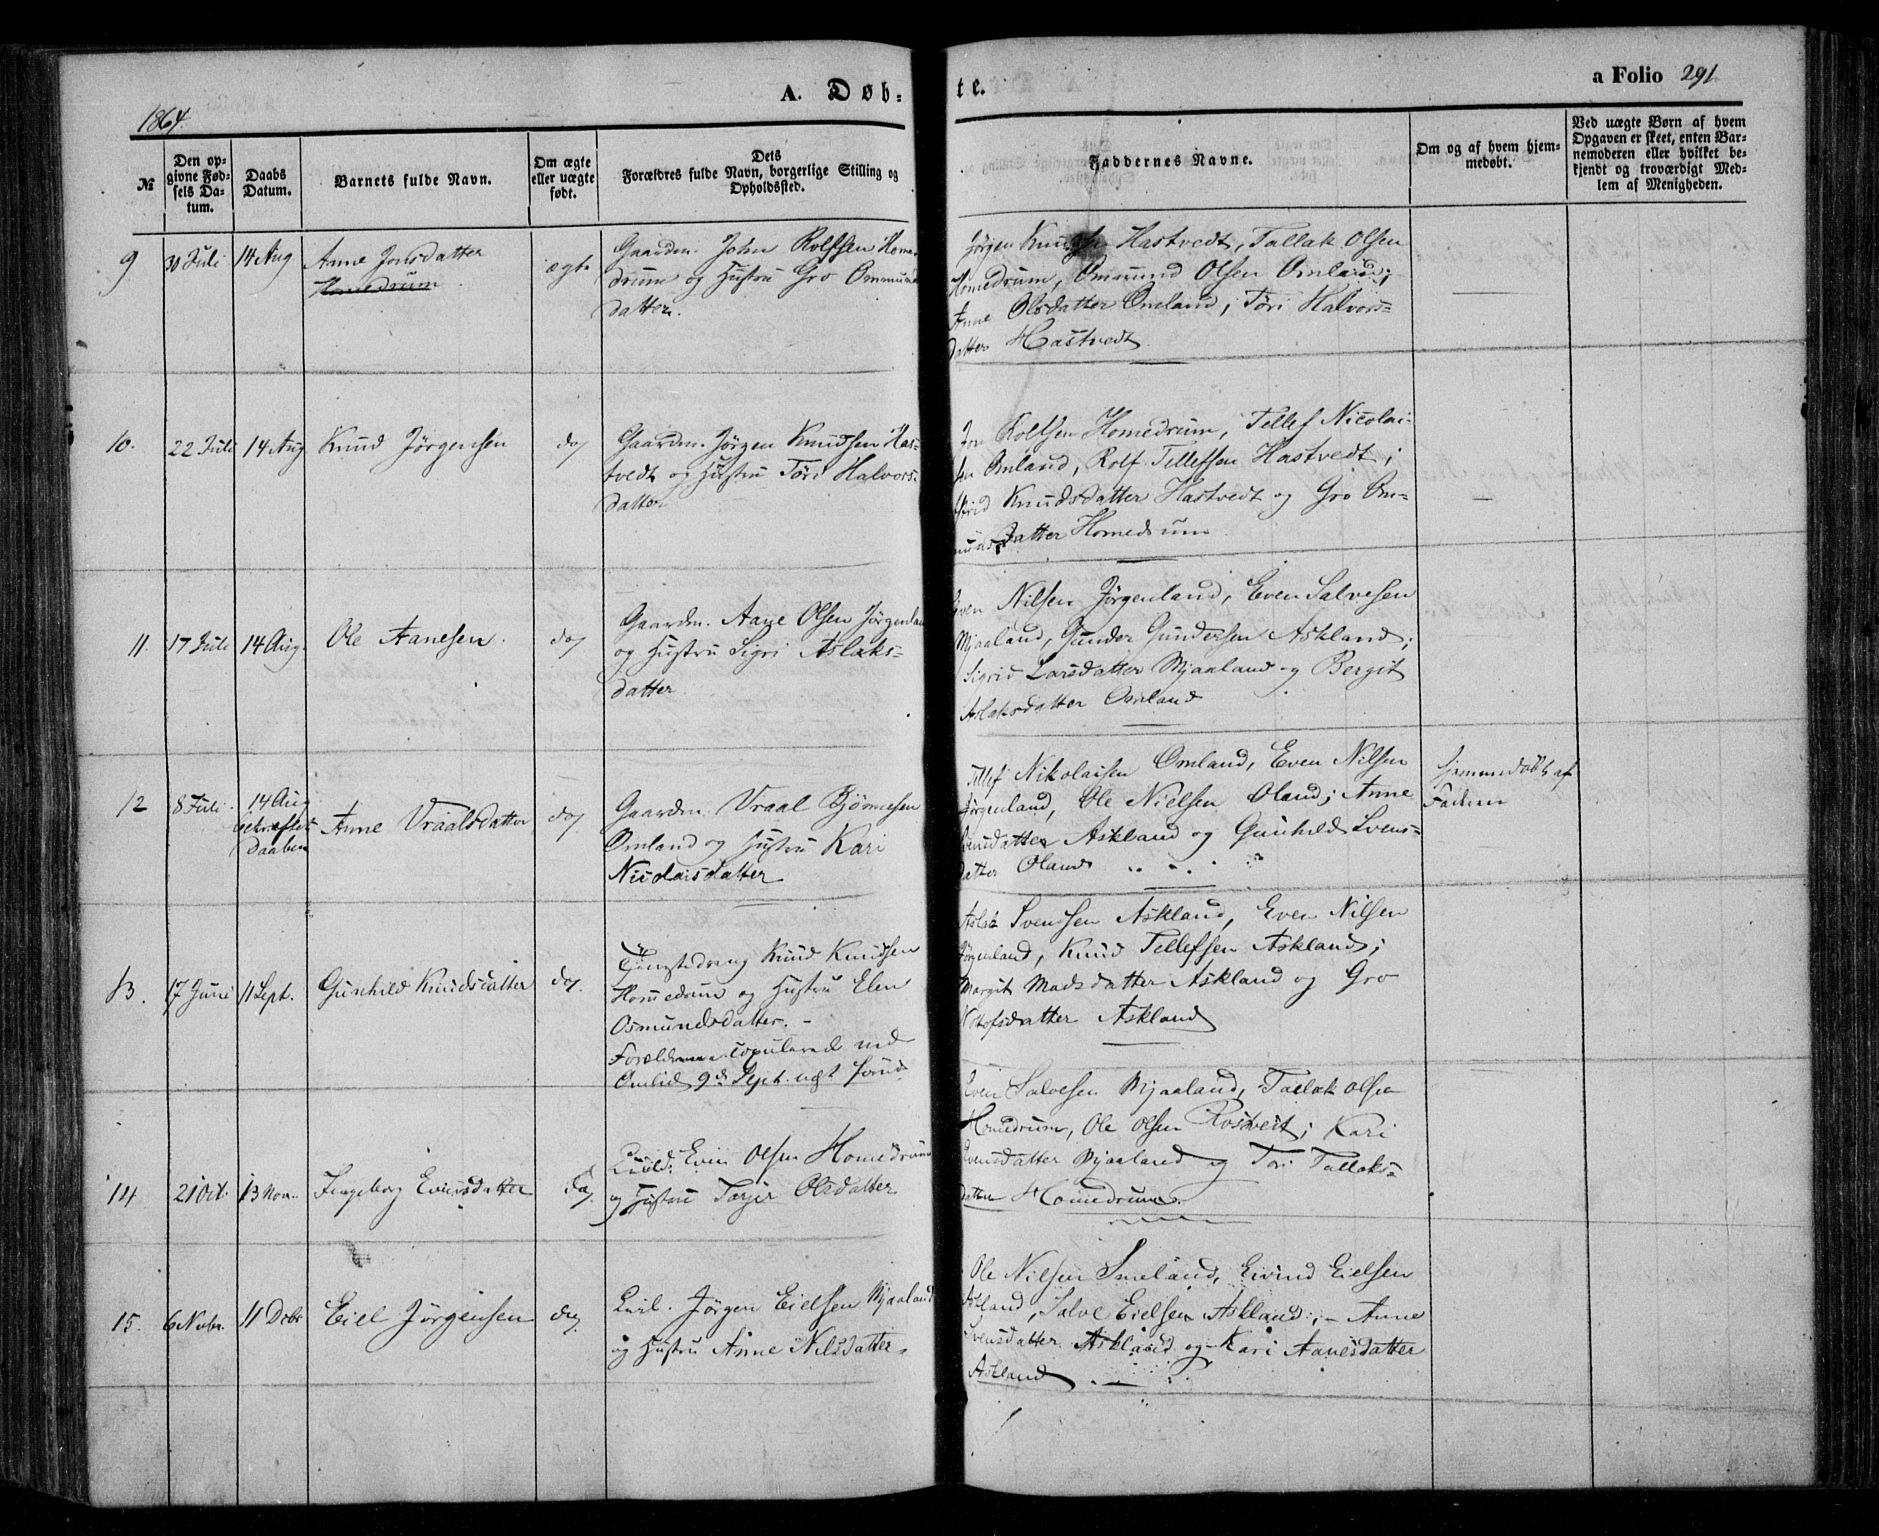 A. Døb-te.
a Folio 291
1864.
No
Den op-
givne Fød-
sels Da-
tum.
Daabs
Datum.
Barnets fulde Navn.
Om ægte
eller uægte
født.
Dets
Forældres fulde Navn, borgerlige Stilling og
Opholdssted.
Faddernes Navne.
Om og af hvem hjem-
medøbt.
Ved uægte Børn af hvem
Opgaven er skeet, enten Bar-
nemoderen eller hvilket be-
kjendt og troværdigt Med-
lem af Menigheden.
9
30 Juli
14 Aug
Anne Jonsdatter
Homedrum
ægte
Gaardm. John Rolfsen Home-
drum og Hustru Gro Ommunds
datter.
Jørgen Knudsen Hastvedt, Tallak Olsen
Homedrum, Omund Olsen Omland;
Anne Olsdatter Omland, Töri Halvors-
datter Hastvedt
10.
22 Juli
14 Aug
Knud Jørgensen
do
Gaardm. Jørgen Knudsen Has-
tvedt og Hustru Töri Halvors-
datter
Jon Rolfsen Homedrum, Tellef Nicolai-
sen Omland, Rolf Tellefsen Hastvedt;
Knudsdatter Hastvedt og Gro Om-
mundsdatter Homedrum
11.
17 Juli
14 Aug.
Ole Aanesen.
do
Gaardm. Aane Olsen Jørgenland
og Hustru Sigri Aslaks-
datter
Even Nilsen Jørgenland, Even Salvesen
Mjaaland, Gunder Gundersen Askland;
Sigrid Larsdatter Mjaaland og Bergit
Aslaksdatter Omland
12
8 Juli.
14 Aug
bekræftet
Daaben
Anne Vraalsdatter
do
Gaardm. Vraal Bjørnesen
Omland og Hustru Kari
Nicolaisdatter
Tellef Nikolaisen Omland, Even Nilsen
Jørgenland, Ole Nielsen Oland; Anne
Svensdatter Askland og Gunhild Svens-
datter Oland
hjemmedøbt af
Faderen
13.
17 Juni
11 Sept.
Gunhild Knudsdatter
do.
Tjenestedreng Knud Knudsen
Homedrum og Hustru Elen
Osmundsdatter. -
Forældrene copulered ved
Omlid 9de Sept.
Aslak Svendsen Askland, Even Nilsen
Jørgenland, Knud Tellefsen Askland;
Margit Madsdatter Askland og Gro
datter Askland
14
21 Oct.
13 Nov.
Ingeborg Evensdatter
do.
Even Olsen Homedrum
og Hustru Torjer Olsdatter
Even Salvesen Mjaaland, Tallak Olsen
Homedrum, Ole Olsen Rostveit; Kari
Evensdatter Mjaaland og Tori Tallaks-
datter Homedrum.
15.
6 Novbr.
11 Decbr
Eiel Jørgensen
do.
Jørgen Eielsen Mjaaland
og Hustru Anne Nilsdatter.
Ole Nilsen Smeland, Eivind Eielsen
Askland, Salve Eielsen Askland; - Anne
Svensdatter Askland og Kari Aanesdatter
Askland